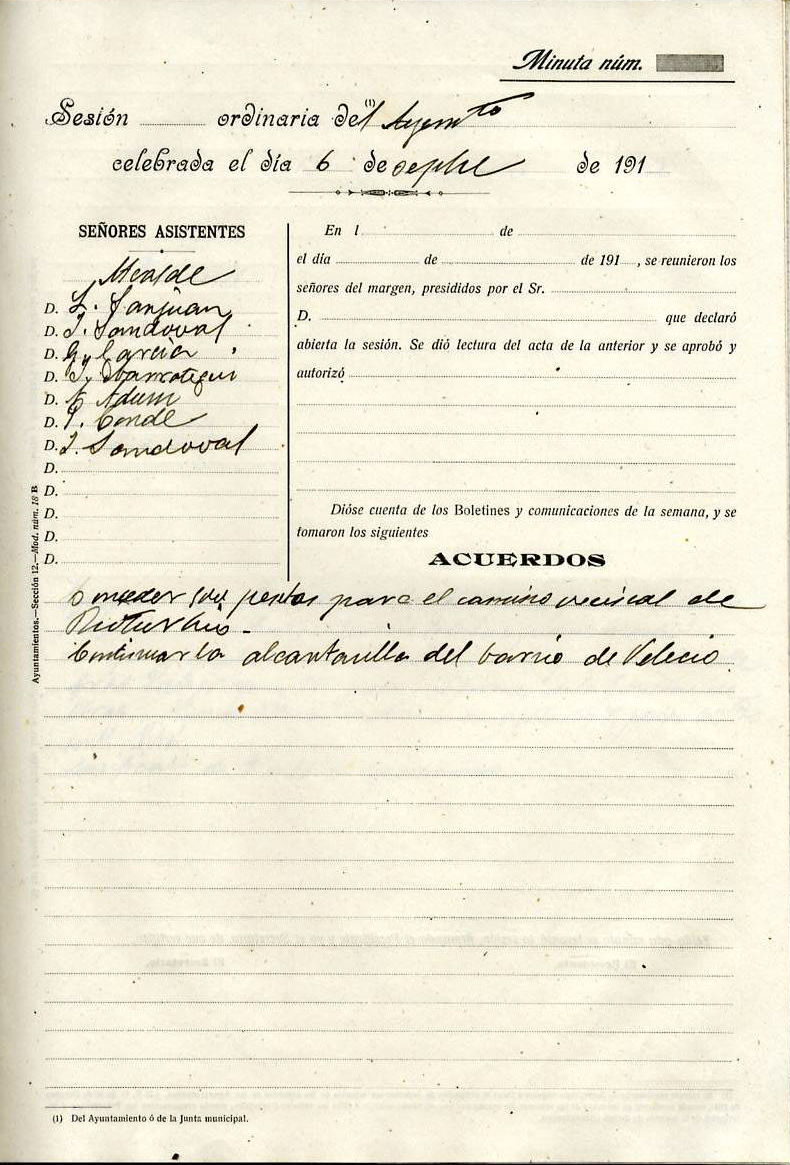 Minuta núm.
Sesión ordinaria de(1)l Ayuntto
celebrada el día 6 de sepbre de 191
SEÑORES ASISTENTES
Alcalde
D. L. Sanjuan
D. J. Sandoval
D. G. García
D. Y. Ibarrategui
D. Adum
D. P. Conde
D. J. Sandoval
D.
D.
D.
D.
D.
En l de
el día de de 191 , se reunieron los
señores del margen, presididos por el Sr.
D. que declaró
abierta la sesión. Se dió lectura del acta de la anterior y se aprobó y
autorizó
Dióse cuenta de los Boletines y comunicaciones de la semana, y se
tomaron los siguientes
ACUERDOS
Conceder pesetas para el camino vecinal de
Continuar la alcantarilla del barrio de Velecio.
Ayuntamientos.—Sección 12.—Mod. núm. 18 B
(1) Del Ayuntamiento ó de la Junta municipal.